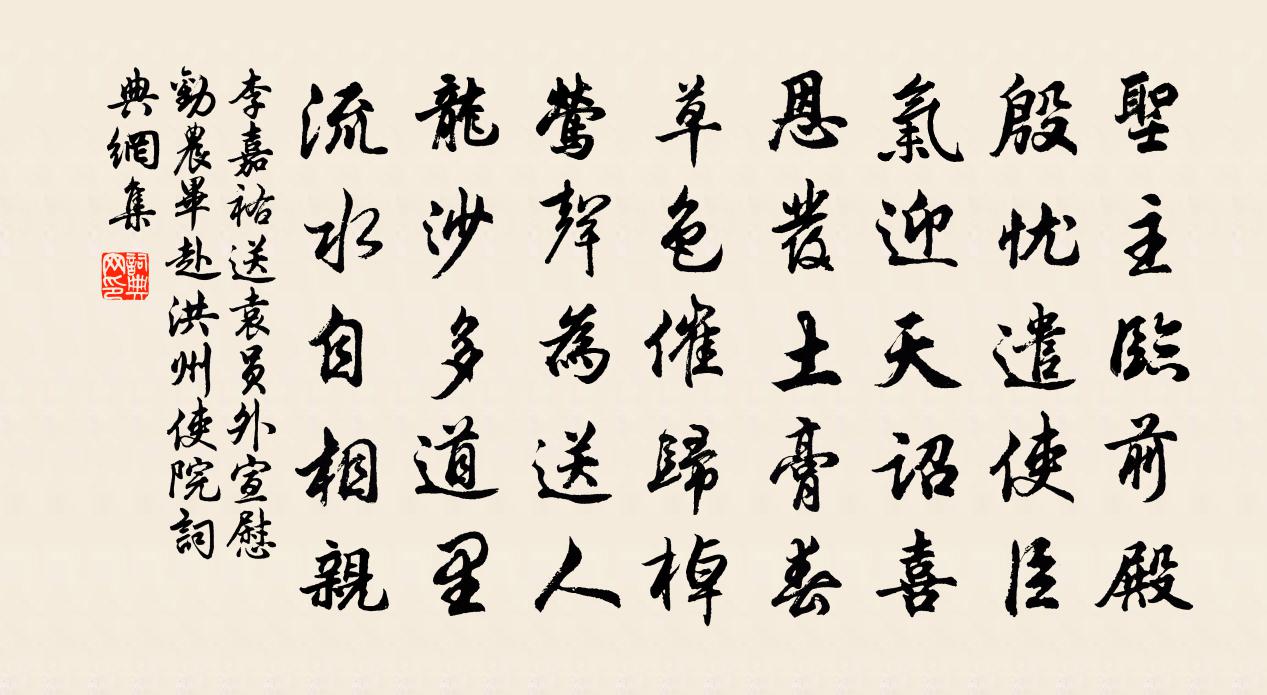 聖主臨前殿
殷忧遣使臣
氣迎天詔喜
恩發土膏春
草色催歸棹
鶯聲為送人
龍沙多道里
流水自相親
李嘉祐送袁员外宣慰
勸農畢赴洪州使院詞
典網集
詞典网印